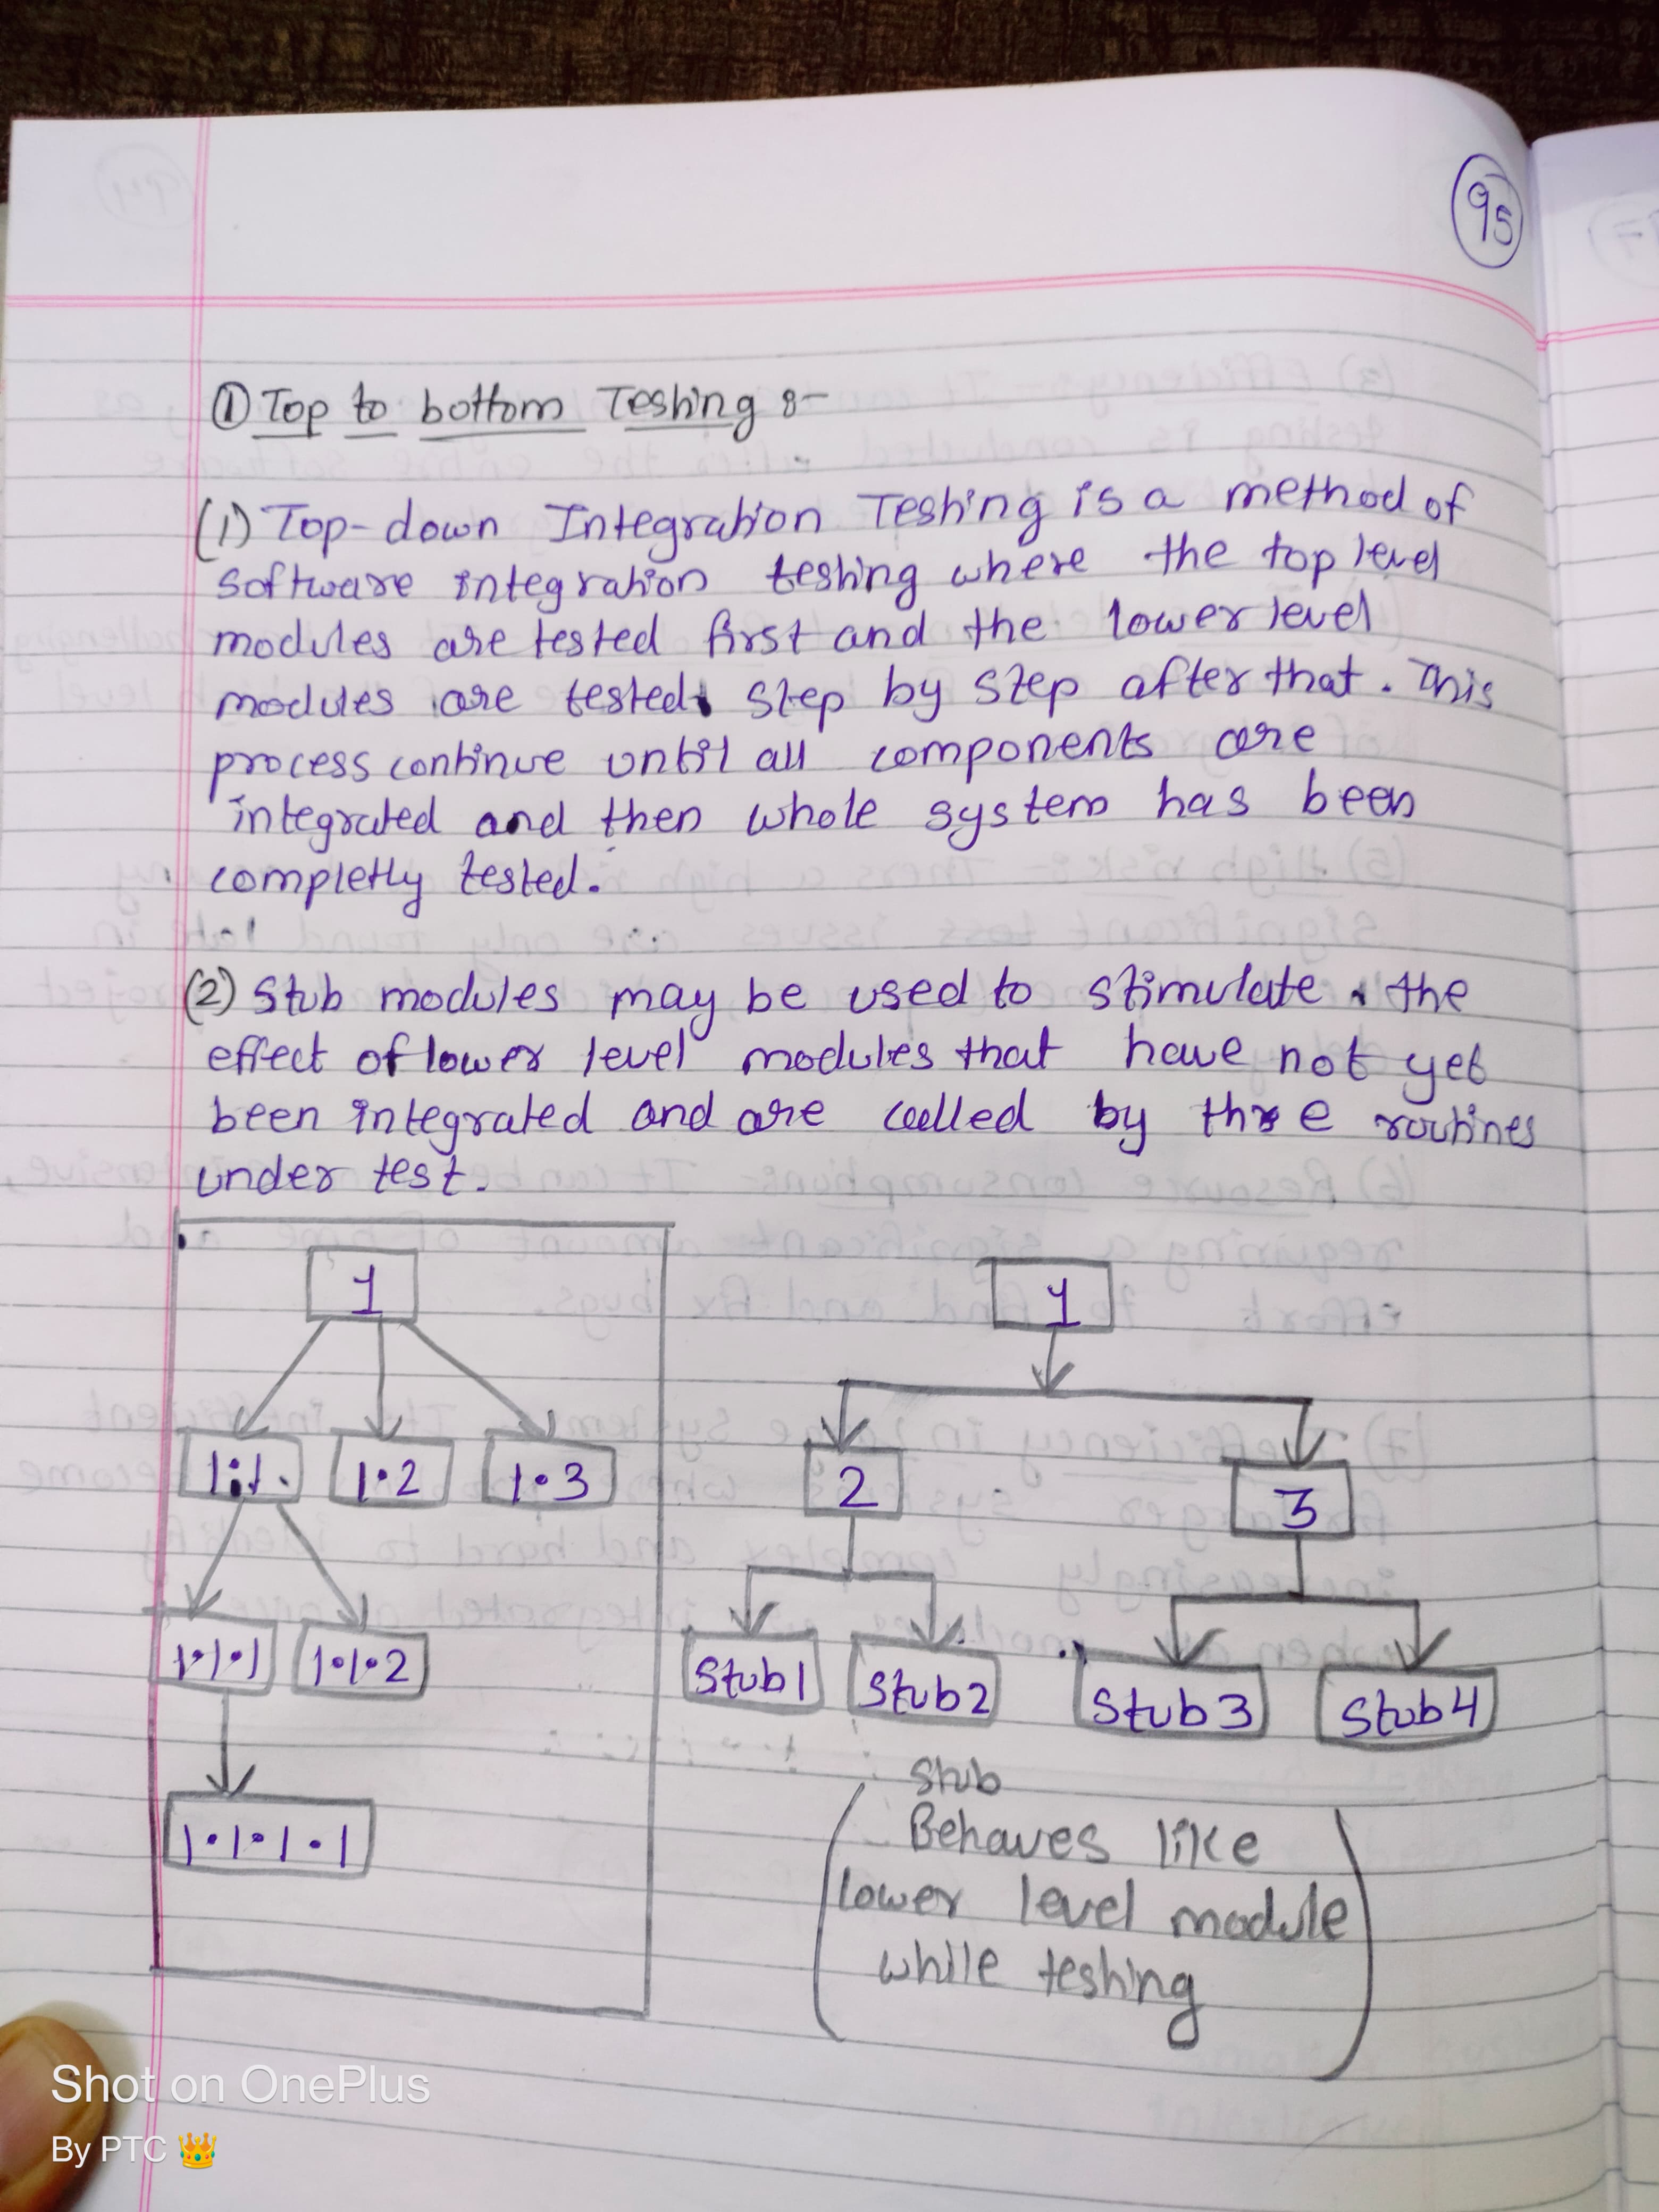 95
① Top to bottom Testing :-
(1) Top-down Integration Testing is a method of
software integration testing where the top level
modules are tested first and the lower level
modules are tested step by step after that. This
process continue until all components are
integrated and then whole system has been
completly tested.
(2) Stub modules may be used to stimulate the
effect of lower level modules that have not yet
been integrated and are called by the routines
under test.
1
1.1 1.2 1.3
1.1.1 1.1.2
1.1.1.1
1
2 3
Stub1 Stub2 Stub3 Stub4
Stub
Behaves like
lower level module
while testing
Shot on OnePlus
By PTC 👑